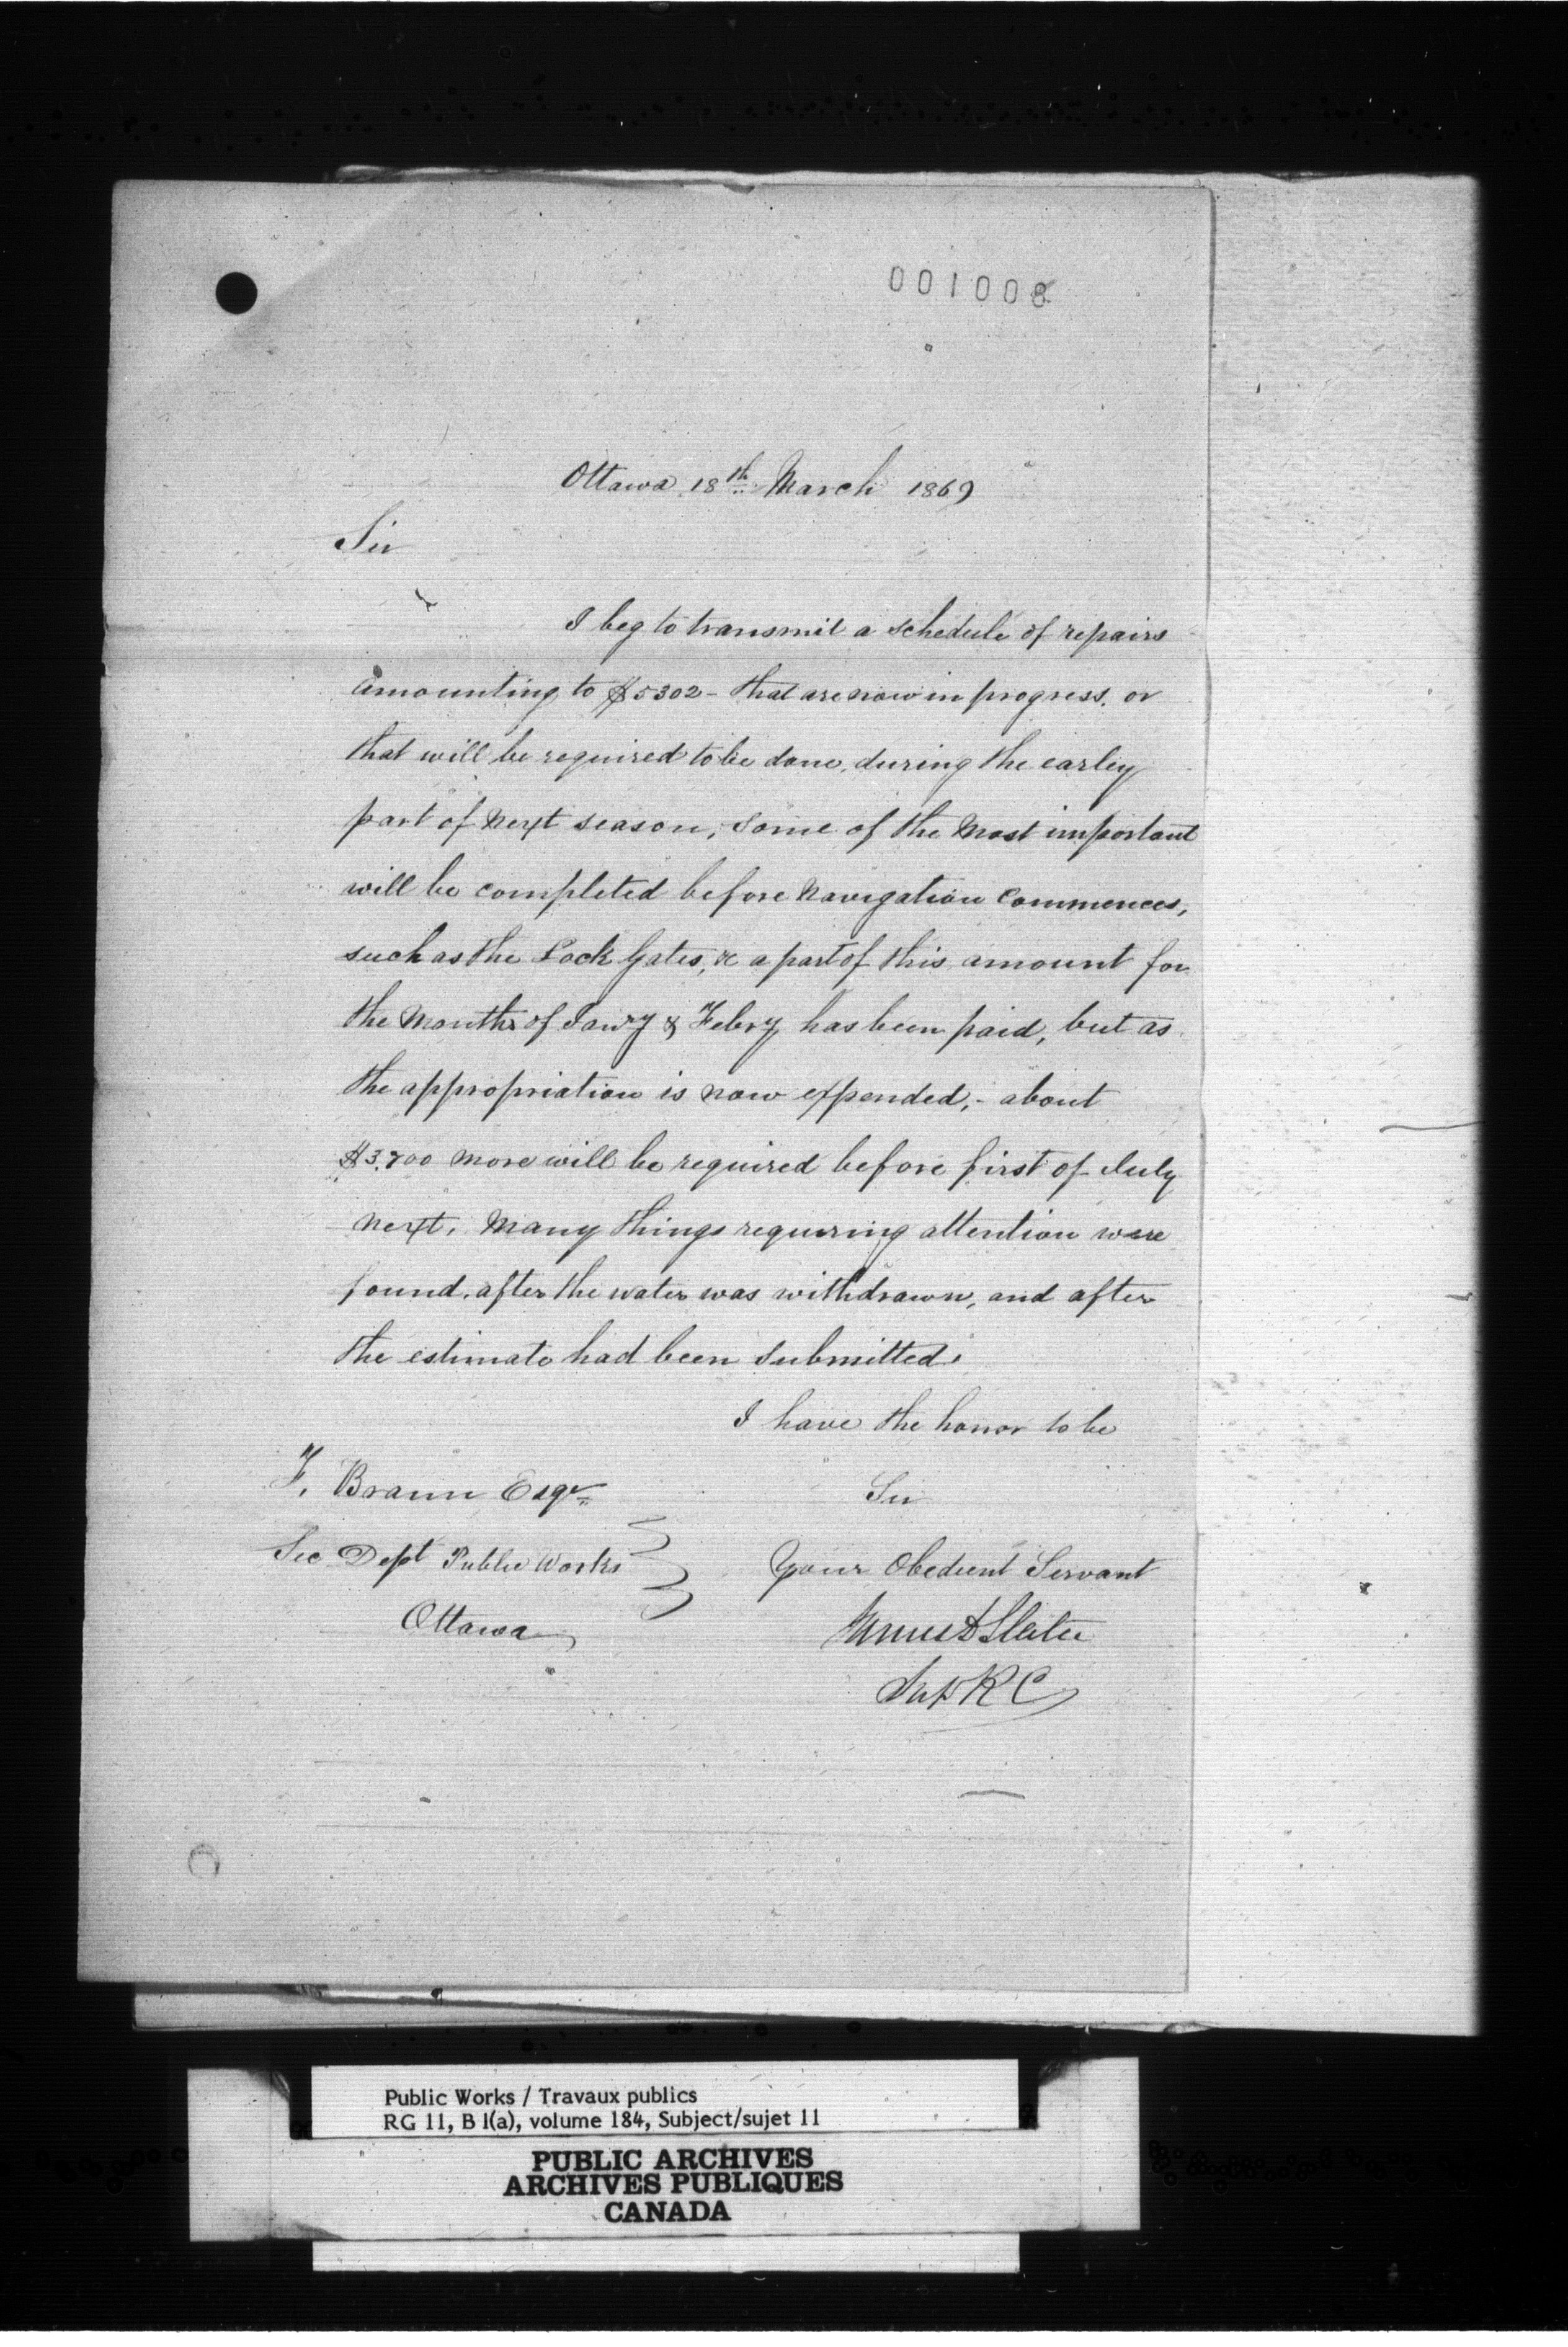 001008
Ottawa 18th March 1869
Sir
I beg to transmit a schedule of repairs
amounting to $5302 - that are now in progress. or
that will be required to be done, during the earley
part of next season, some of the most important
will be completed before navigation commences,
such as the Lock Gates, &c a part of this amount for
the months of Janry & Febry has been paid, but as
the appropriation is now expended, - about
more will be required before first of July
next. Many things requiring attention were
found, after the water was withdrawn, and after
the estimate had been submitted.
I have the honor to be
F. Braun Esqr
Sir
Sec Dept Public Works
Your Obedient Servant
Ottawa
James D Slater
Supt R C
Public Works / Travaux publics
RG 11, B 1(a), volume 184, Subject/sujet 11
PUBLIC ARCHIVES
ARCHIVES PUBLIQUES
CANADA